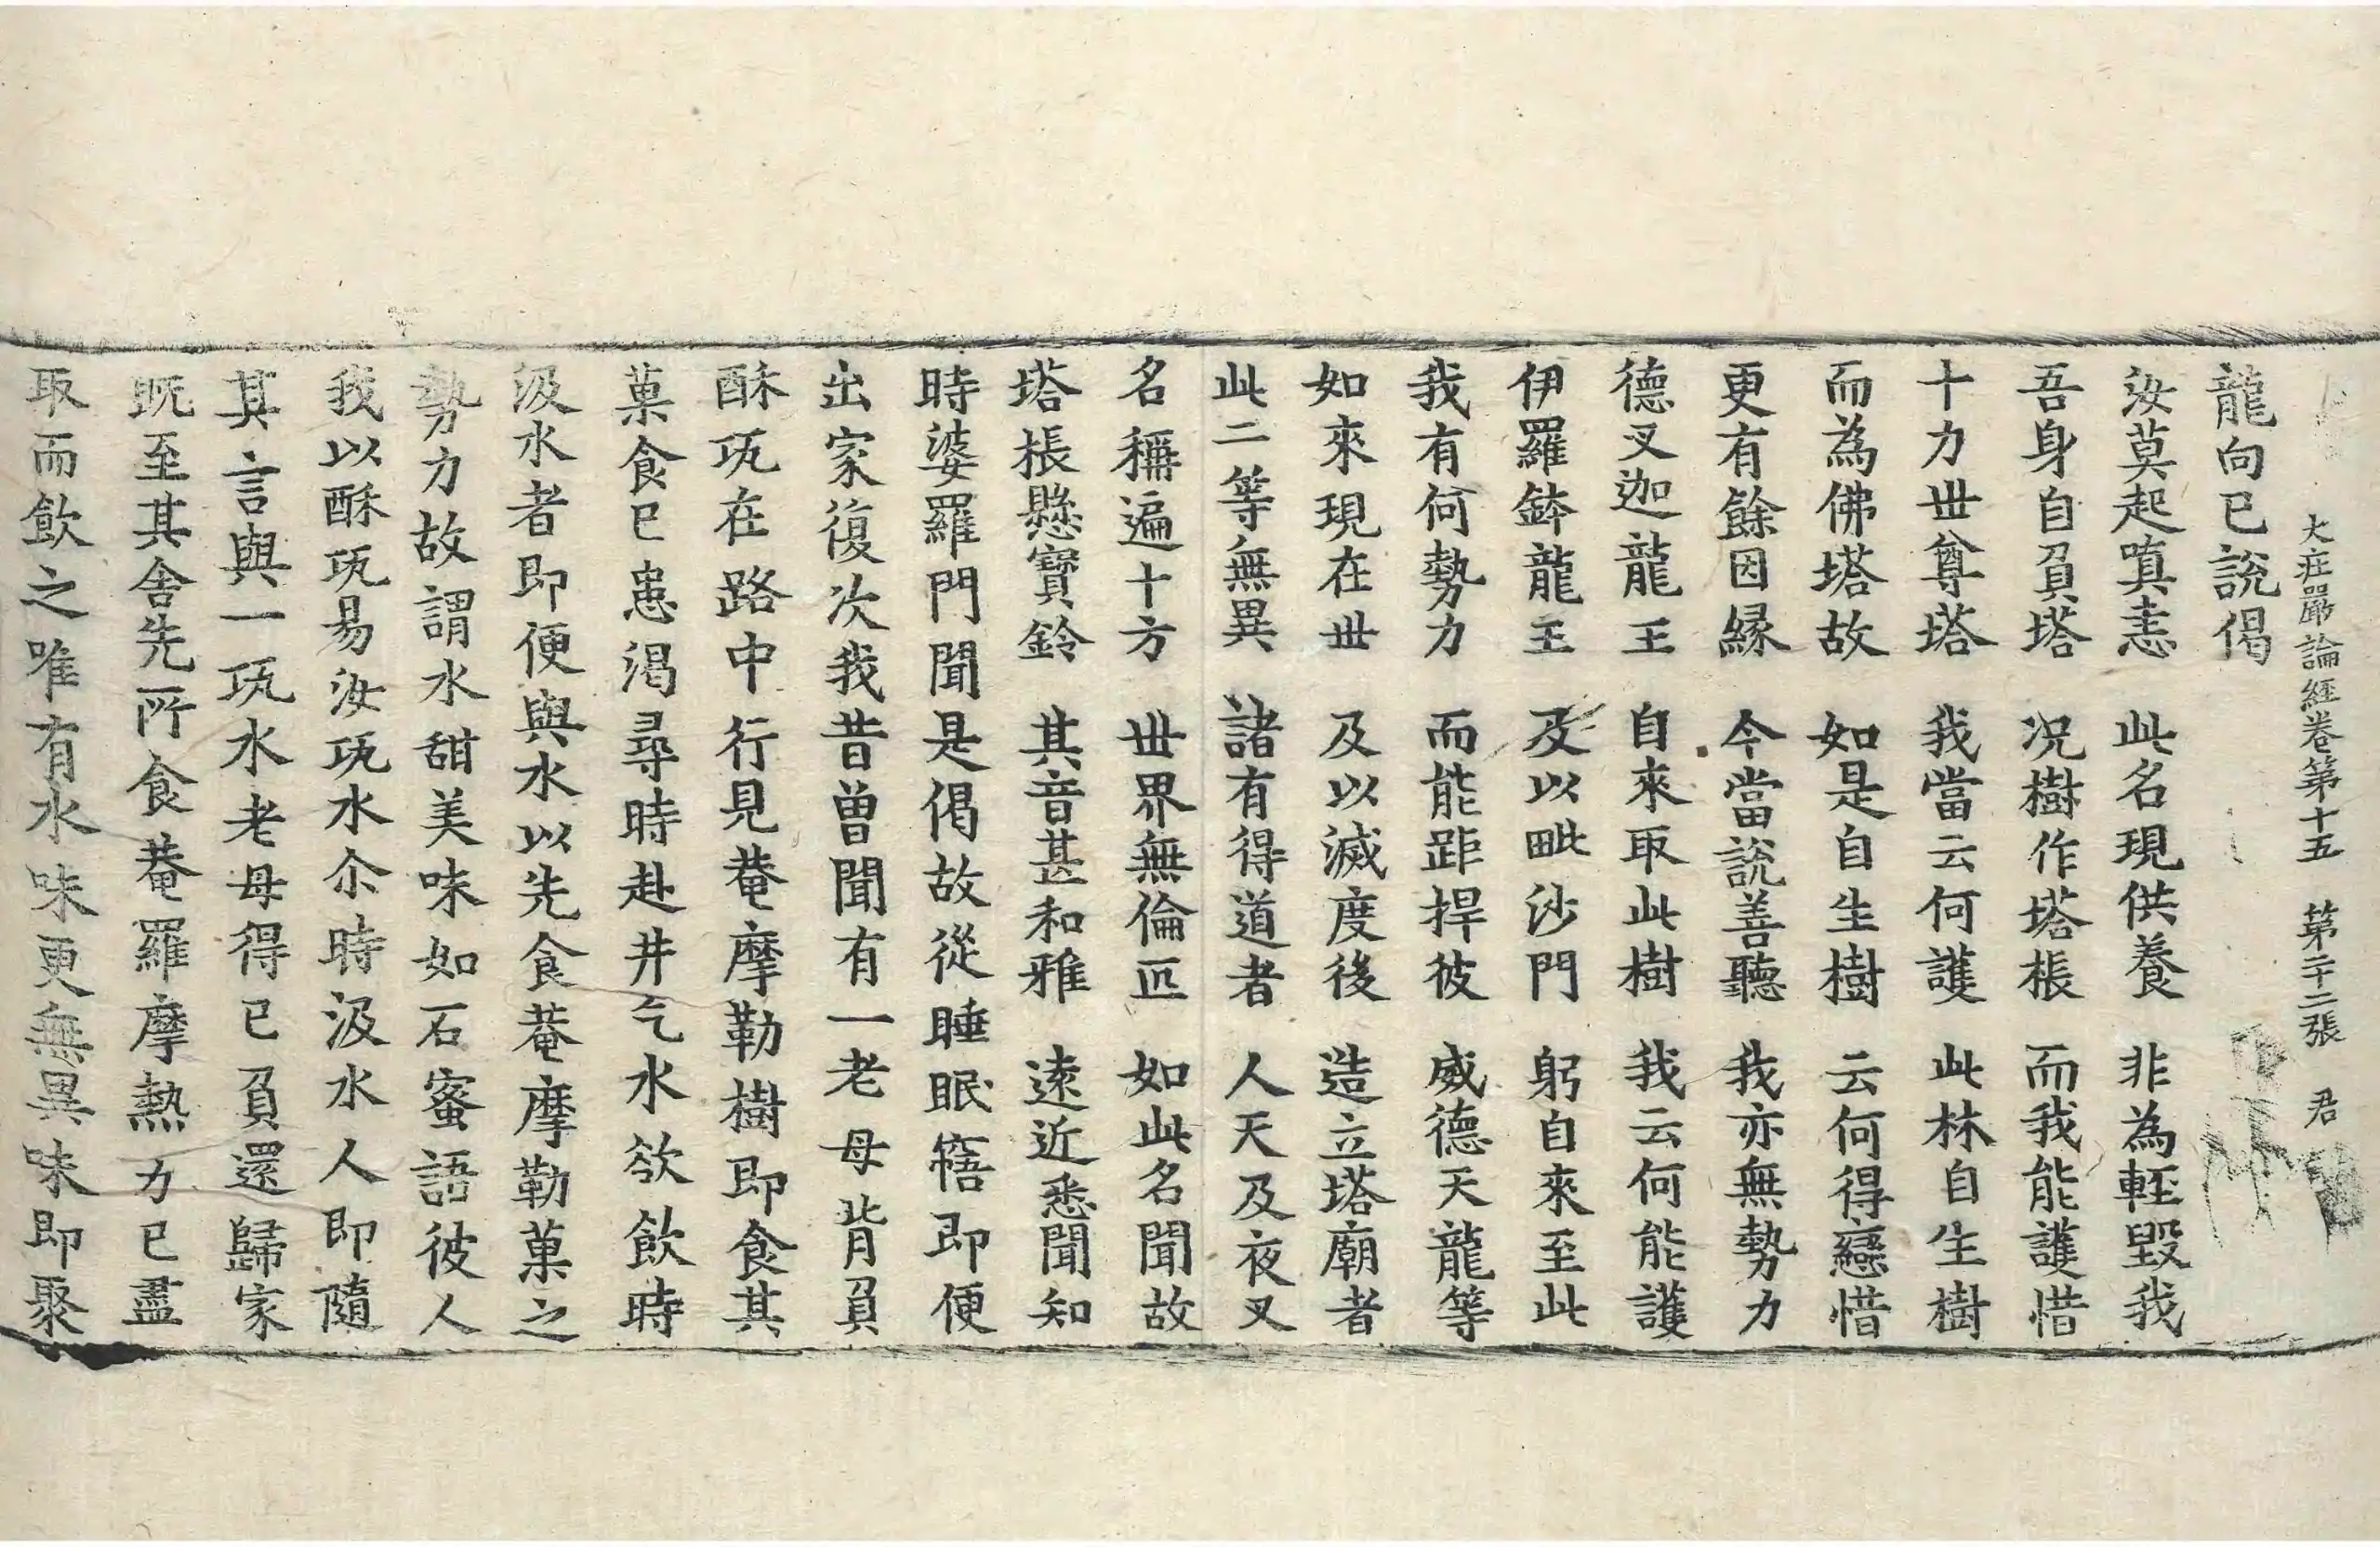 大庄嚴論經卷第十五　第二十二張　君
龍向已說偈
汝莫起嗔恚　此名現供養　非為輕毀我
吾身自負塔　况樹作塔棖　而我能護惜
十力世尊塔　我當云何護　此林自生樹
而為佛塔故　如是自生樹　云何得戀惜
更有餘因縁　今當說善聽　我亦無勢力
德叉迦龍王　自來取此樹　我云何能護
伊羅鉢龍王　及以毗沙門　躬自來至此
我有何勢力　而能距捍彼　威德天龍等
如來現在世　及以滅度後　造立塔廟者
此二等無異　諸有得道者　人天及夜叉
名稱遍十方　世界無倫匹　如此名聞故
塔棖懸寶鈴　其音甚和雅　遠近悉聞知
時婆羅門聞是偈故從睡眠寤即便
出家復次我昔曾聞有一老母背負
酥瓨在路中行見菴摩勒樹即食其
菓食已患渴尋時赴井乞水欲飲時
汲水者即便與水以先食菴摩勒菓之
勢力故謂水甜美味如石蜜語彼人
我以酥瓨易汝瓨水尒時汲水人即隨
其言與一瓨水老母得已負還歸家
既至其舍先所食菴羅摩熱力已盡
取而飲之唯有水味更無異味即聚